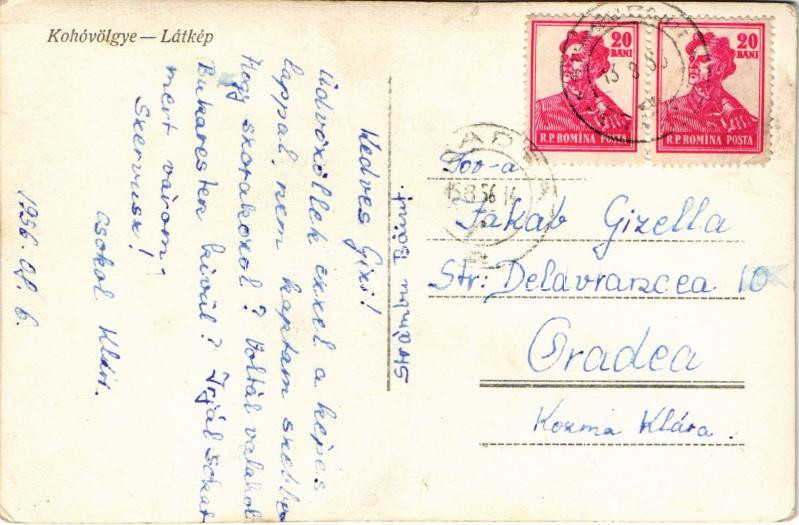 Kohóvölgye — Látkép
Kedves Gizi!
Üdvözöllek ezzel a képes
lappal, nem kaptam szebbet
Hogy szorakozol? Voltál valahol
Bukaresten kivül? Irjál sokat
mert várom,
Szervusz!
csokol Klári.
1956. 08. 6.
20
BANI
R.P. ROMINA POSTA
20
BANI
R.P. ROMINA POSTA
15 8 56 14
Tov-a
Jakab Gizella
Str: Delavrancea 10
Oradea
Kozma Klára.